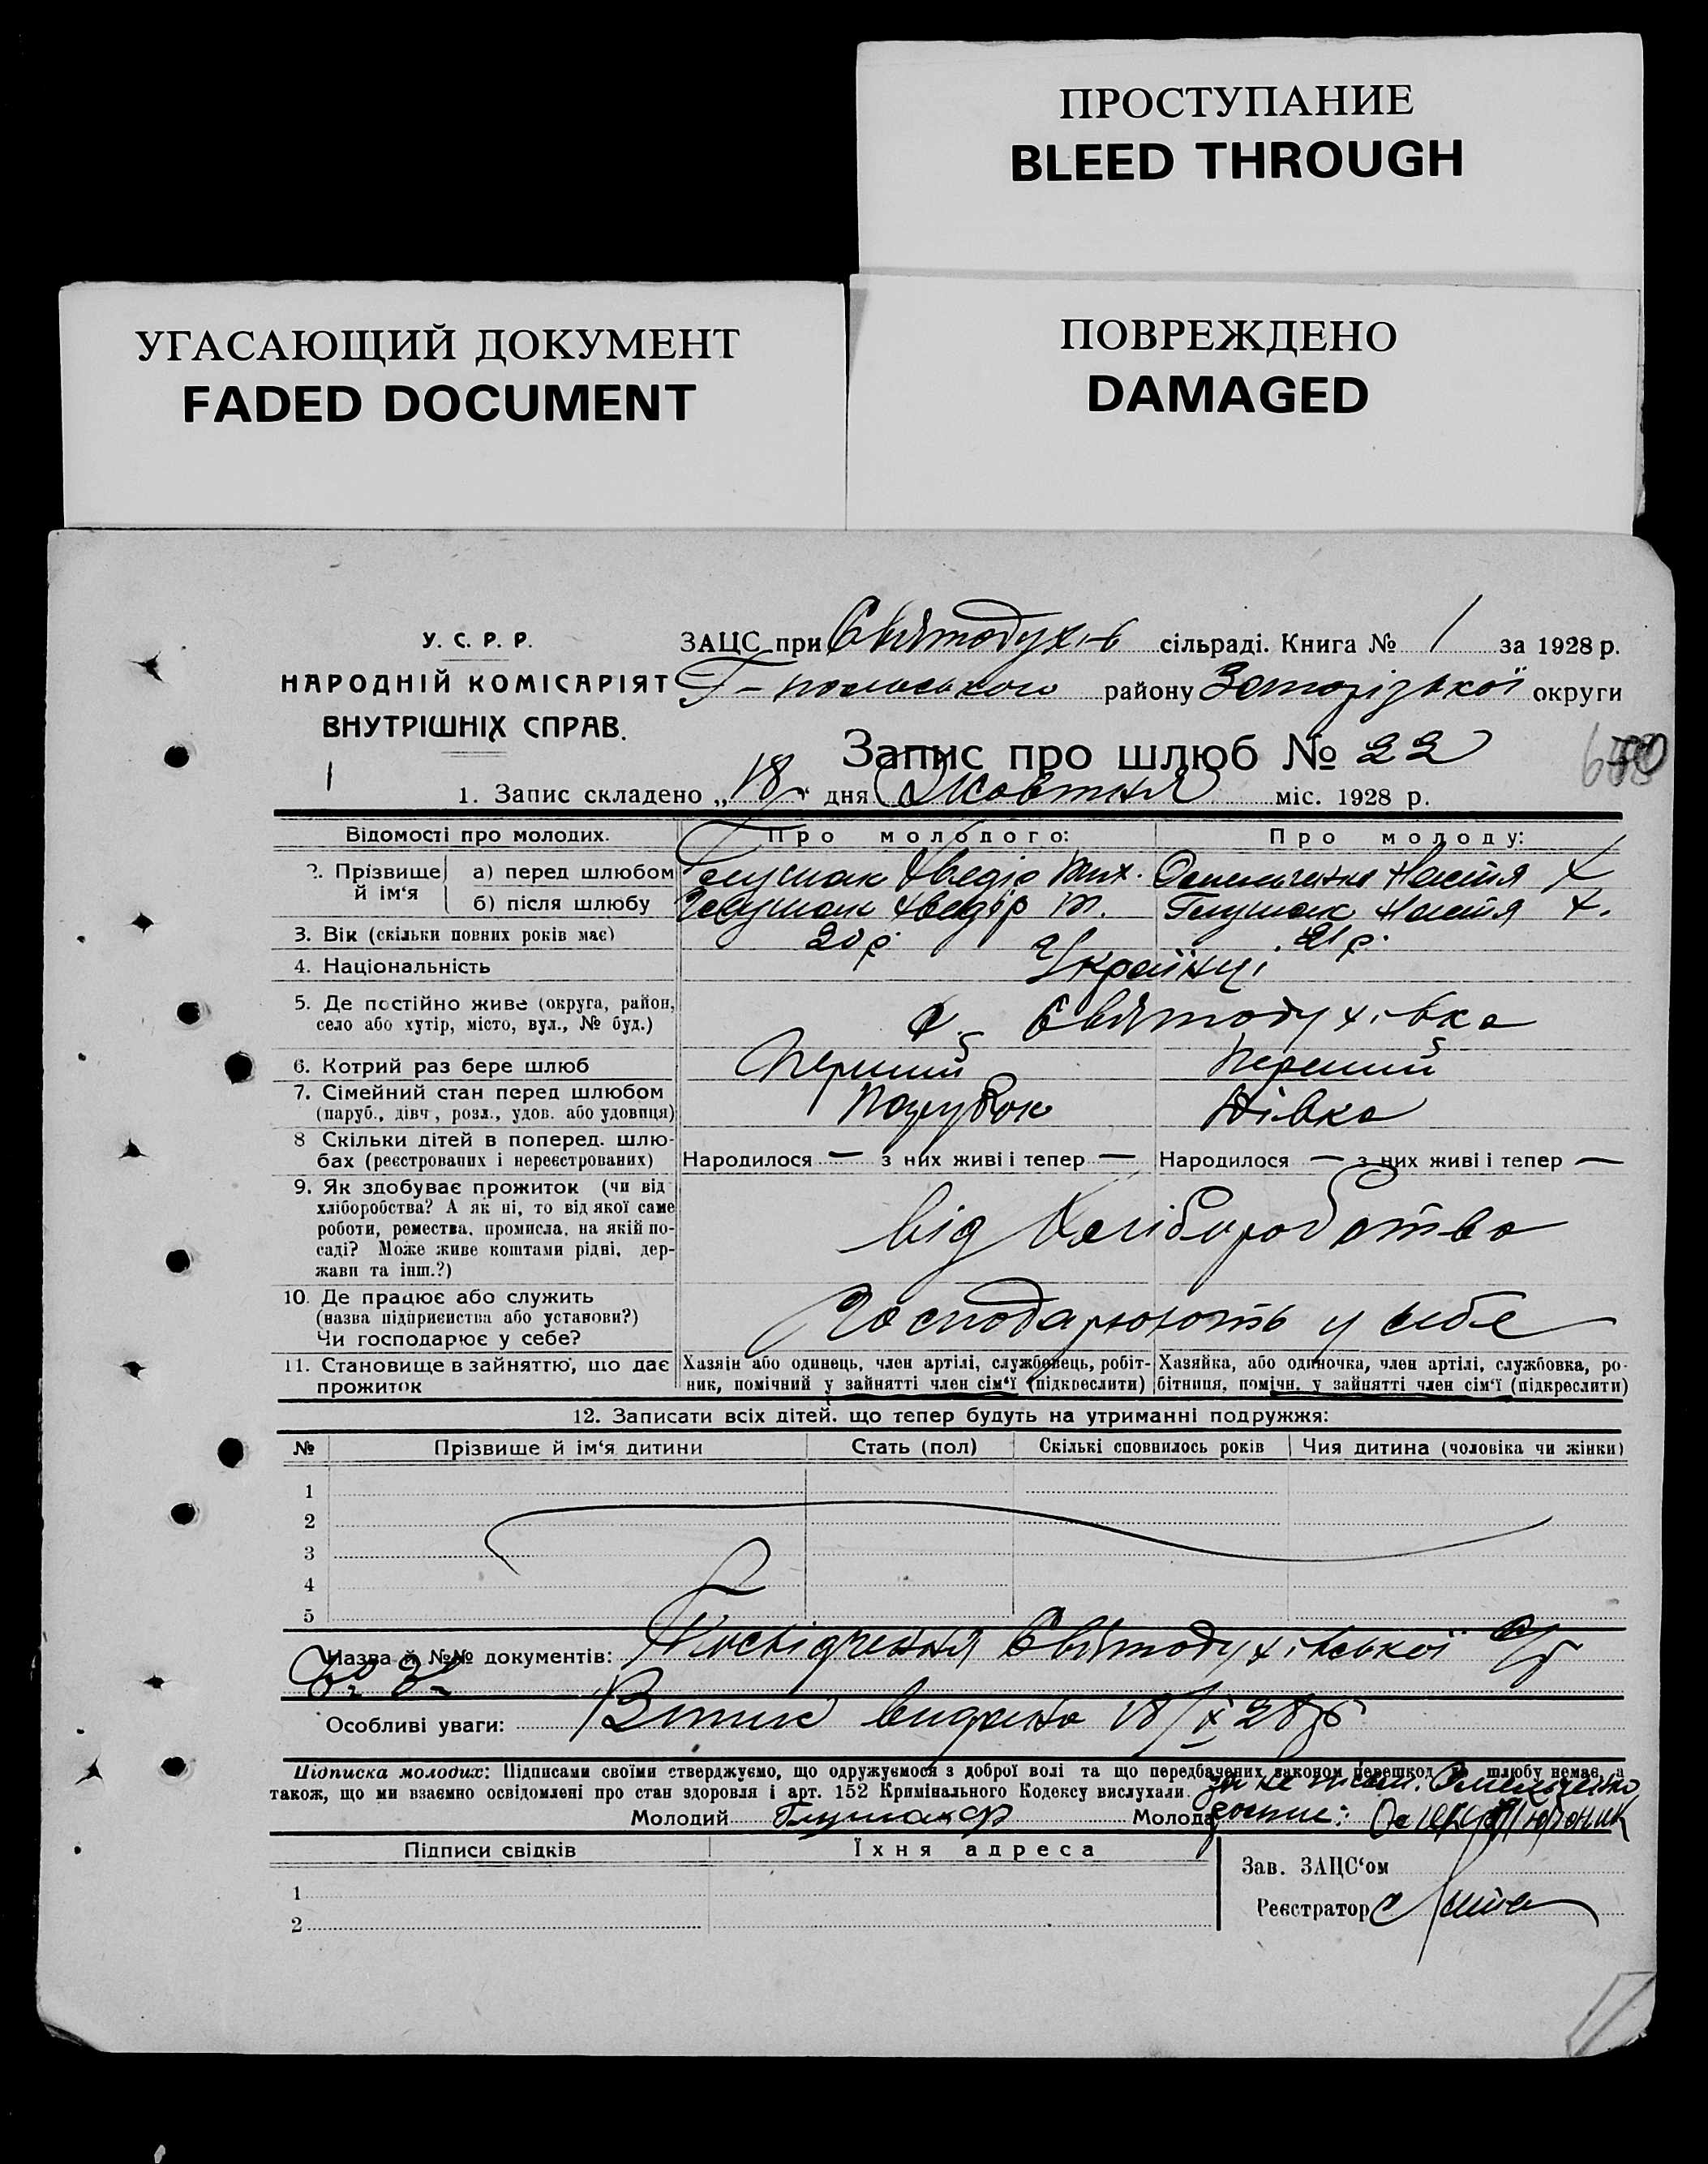 ПРОСТУПАНИЕ
BLEED THROUGH
УГАСАЮЩИЙ ДОКУМЕНТ
FADED DOCUMENT
ПОВРЕЖДЕНО
DAMAGED
У. С. Р. Р.
НАРОДНІЙ КОМІСАРІЯТ
ВНУТРІШНІХ СПРАВ.
1
ЗАЦС при Святодухів сільраді. Книга № 1 за 1928 р.
району Запорізької округи
Запис про шлюб № 22
1. Запис складено „18“ дня Жовтня міс. 1928 р.
Відомості про молодих. Про молодого: Про молоду:
2. Прізвище й ім‘я а) перед шлюбом Глушак Хведір Мих. Омельченко Настя Х
б) після шлюбу Глушак Хведір М. Глушак Настя Х.
3. Вік (скільки повних років має) 20 р. 21 р.
4. Національність Українці
5. Де постійно живе (округа, район,
село або хутір, місто, вул., № буд.) с. Святодухівка
6. Котрий раз бере шлюб Перший Перший
7. Сімейний стан перед шлюбом
(паруб., дівч., розл., удов. або удовиця) Парубок Дівка
8 Скільки дітей в поперед. шлю-
бах (реєстрованих і нереєстрованих) Народилося — з них живі і тепер — Народилося — з них живі і тепер —
9. Як здобуває прожиток (чи від
хліборобства? А як ні, то від якої саме
роботи, ремества, промисла, на якій по-
саді? Може живе коштами рідні, дер-
жави та інш.?) від Хліборобства
10. Де працює або служить
(назва підприємства або установи?)
Чи господарює у себе? Господарюють у себе
11. Становище в зайняттю, що дає
прожиток
Хазяін або одинець, член артілі, службовець, робіт-
ник, помічний у зайнятті член сім‘ї (підкреслити)
Хазяйка, або одиночка, член артілі, службовка, ро-
бітниця, помічн. у зайнятті член сім‘ї (підкреслити)
12. Записати всіх дітей, що тепер будуть на утриманні подружжя:
№ Прізвище й ім‘я дитини Стать (пол) Скількі сповнилось років Чия дитина (чоловіка чи жінки)
1
2
3
4
5
Назва й №№ документів: Посвідчення Святодухівської
Особливі уваги: Витис видано 18/X 28 р
Підписка молодих: Підписами своїми стверджуємо, що одружуємося з доброї волі та що передбачених законом перешкод до шлюбу немає, а
також, що ми взаємно освідомлені про стан здоровля і арт. 152 Кримінального Кодексу вислухали. за не письм. Омельченко
Молодий Глушак Ф Молода
Підписи свідків Їхня адреса
1
2
Зав. ЗАЦС‘ом
Реєстратор